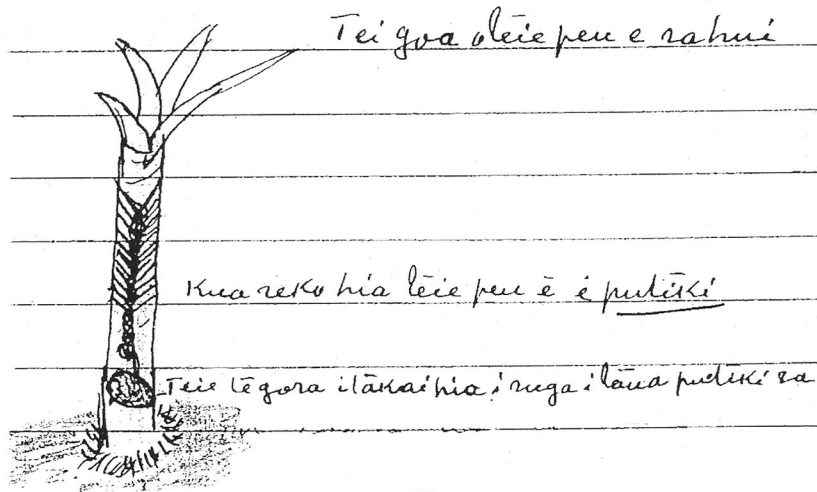 Tei goa o tēie peu e rahui
Kua reko hia tēie peu ē é putīki
Teie tē gora i tākai hia i ruga i tāna putīki ra